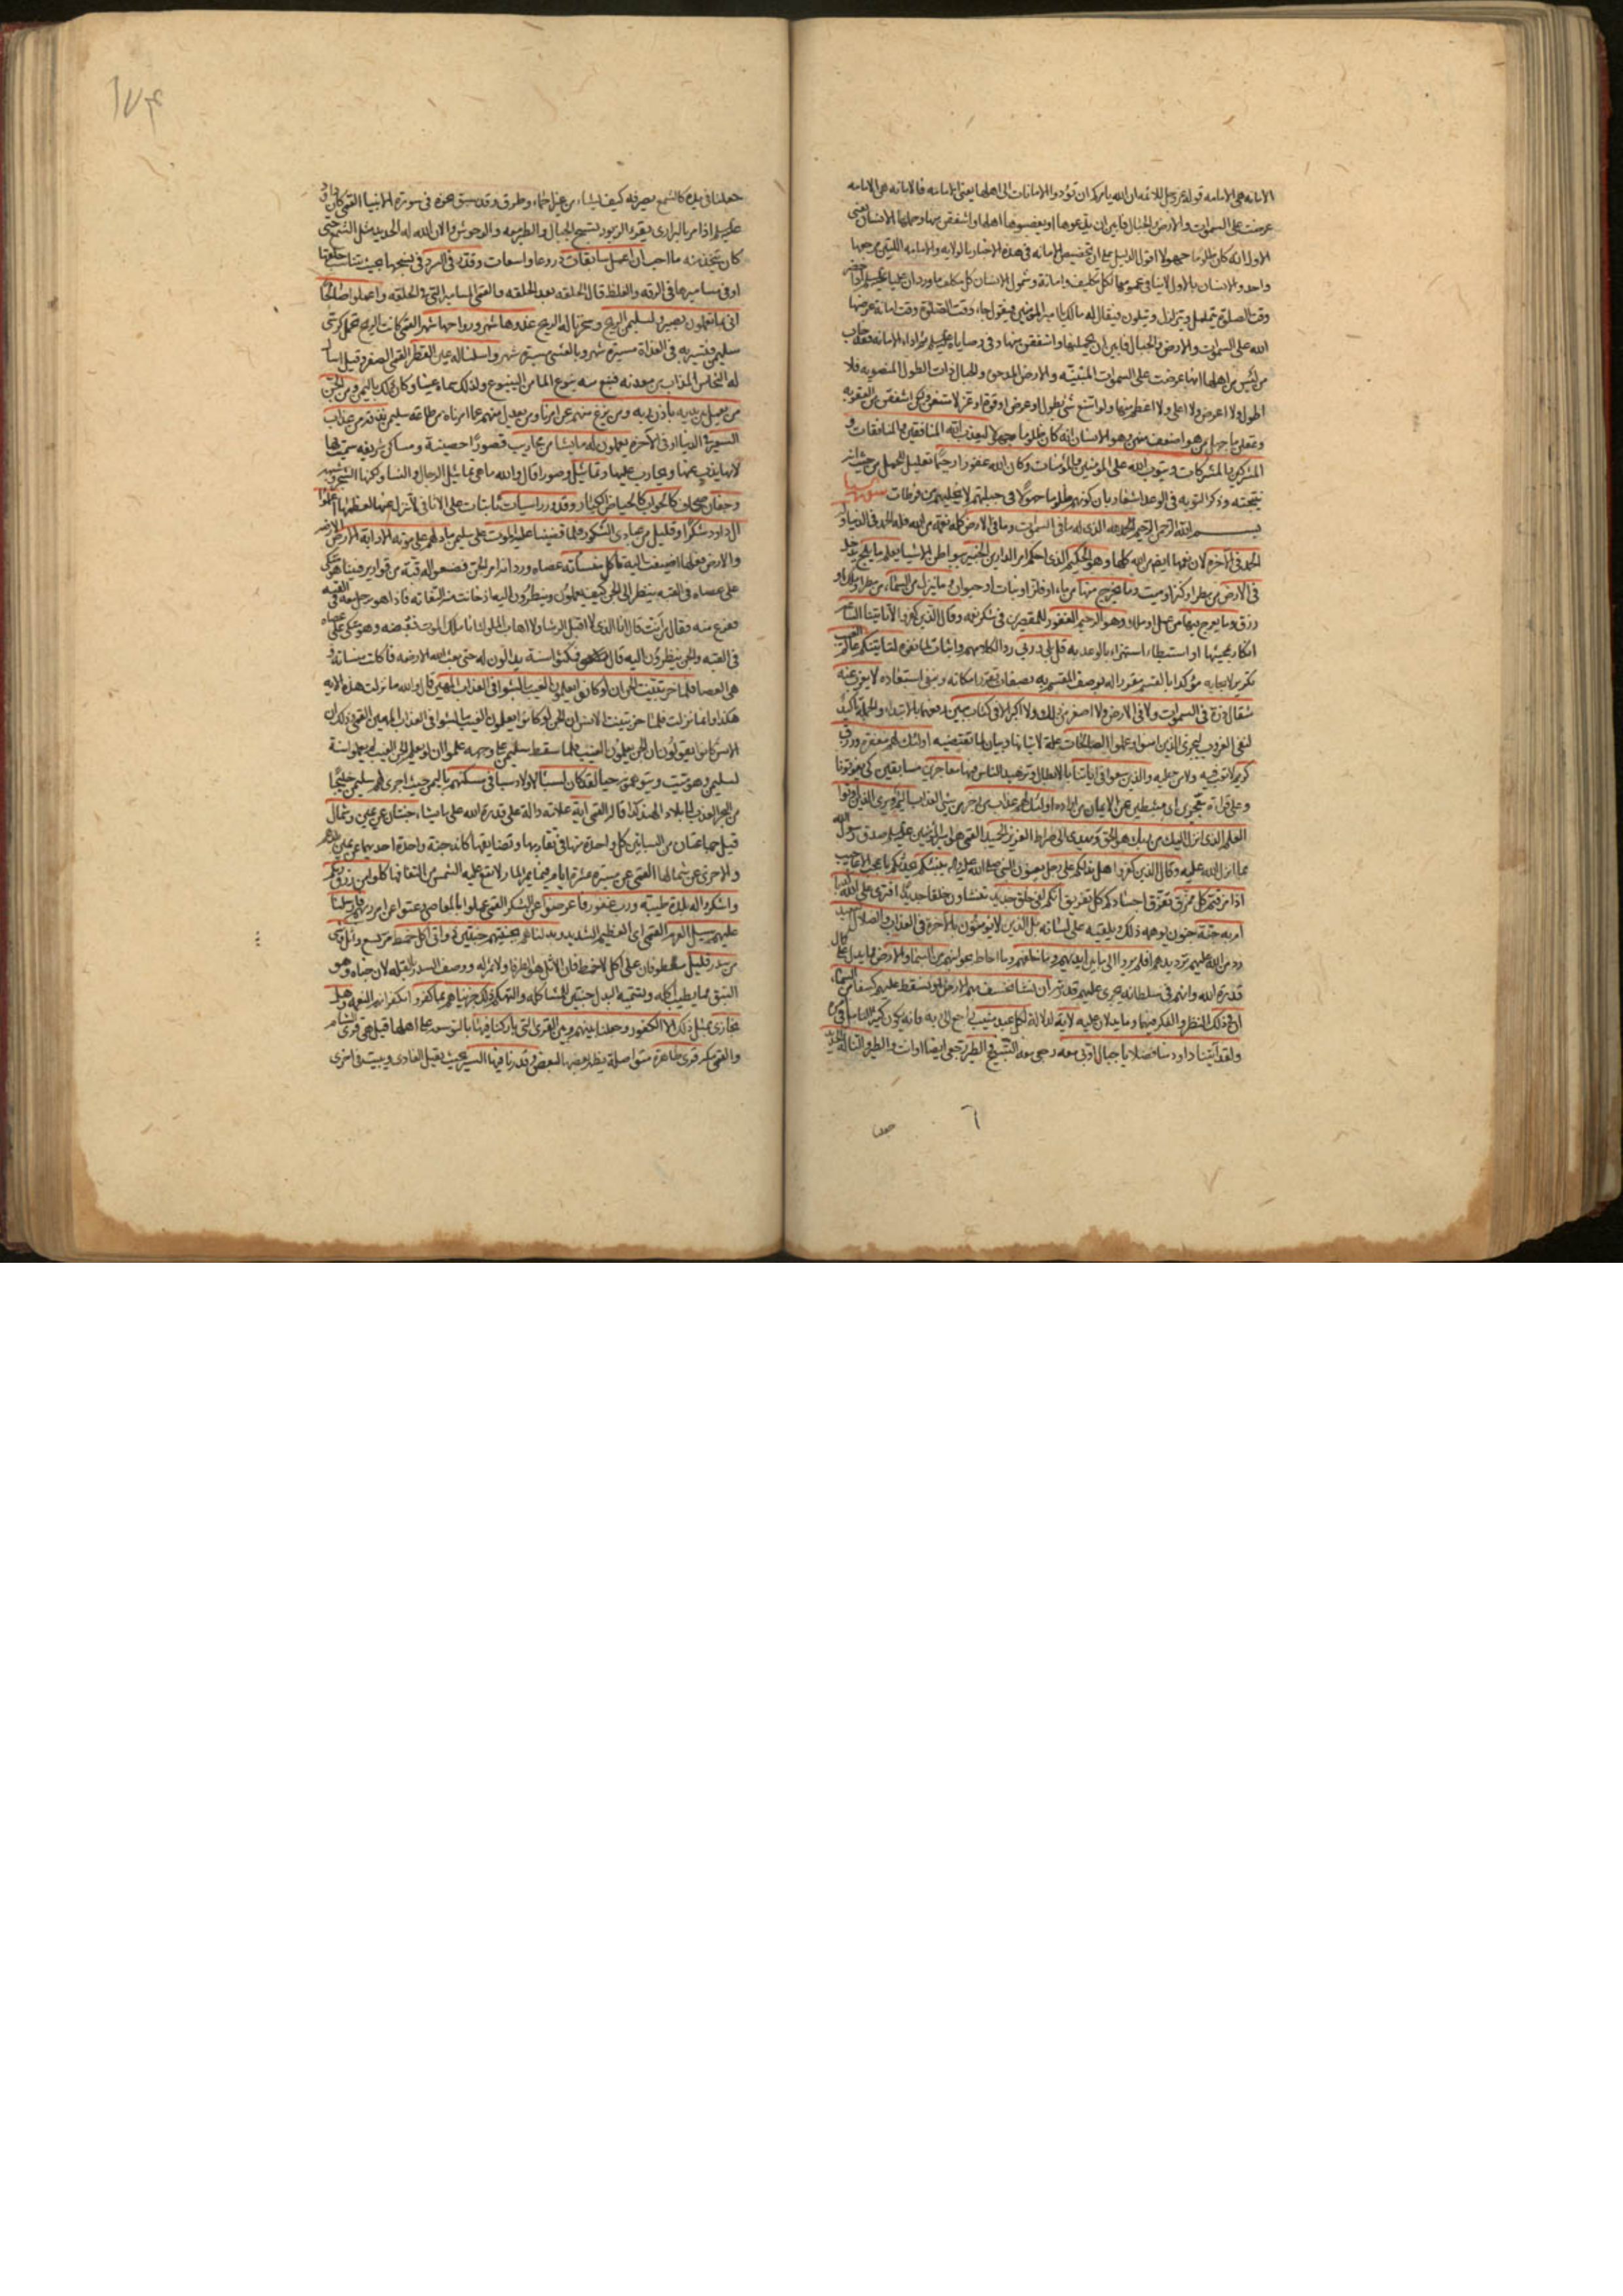 الامانه هى الامامه قوله عز وجل للائمه ان الله يامركم ان تؤدوا الامانات الى اهلها يعنى الامامه فالامانه هى الامامه
عرضت على السموات والارض والجبال فابين ان يدعوها او يغصبوها اهلها واشفقن منها وحملها الانسان يعنى
الاول انه كان ظلوما جهولا اقول الدليل على ان تخصيص الامانه فى هذه الاخبار بالولايه والامامه اللتين مرجعهما
واحد والانسان بالاول لاينافى عمومها لكل تكليف وامانة وشمول الانسان كل مكلف ما ورد ان عليا عليه السلام اذا حضر
وقت الصلوة يتململ ويتزلزل ويتلون فيقال له مالك يا امير المؤمنين فيقول جاء وقت الصلوة وقت امانة عرضها
الله على السموات والارض والجبال فابين ان يحملنها واشفقن منها وفى وصاياه عليه السلام ثم اداء الامانه فقد خاب
من ليس من اهلها انها عرضت على السموات المبنيه والارض المدحوة والجبال ذات الطول المنصوبه فلا
اطول ولا اعرض ولا اعلى ولا اعظم منها ولو امتنع شئ بطول او عرض او قوة او عز لامتنعن ولكن اشفقن من العقوبه
وعقلن ما جهل من هو اضعف منهن وهو الانسان انه كان ظلوما جهولا ليعذب الله المنافقين والمنافقات و
المشركين والمشركات ويتوب الله على المؤمنين والمؤمنات وكان الله غفورا رحيما تعليل للحمل من حيث انه
نتيجته وذكر التوبه فى الوعد اشعار بان كونهم ظلوما جهولا فى جبلتهم لا يخليهم من فرطات سورة سبا
بسم الله الرحمن الرحيم الحمد لله الذى له ما فى السموات وما فى الارض كله نعمة من الله فله الحمد فى الدنيا وله
الحمد فى الاخرة لان نعمها ايضا من الله كلها وهو الحكيم الذى احكم امر الدارين الخبير ببواطن الاشياء يعلم ما يلج يدخل
فى الارض من مطر او كنز او ميت وما يخرج منها من ماء او فلز او نبات او حيوان وما ينزل من السماء من مطر او ملك او
رزق وما يعرج فيها من عمل او ملك وهو الرحيم الغفور للمقصرين فى شكر نعمه وقال الذين كفروا لا تاتينا الساعة
انكار لمجيئها او استبطاء استهزاء بالوعد به قل بلى وربى رد لكلامهم واثبات لما نفوه لتاتينكم عالم الغيب
تكرير لايجابه مؤكدا بالقسم مقررا له بوصف المقسم به بصفات تقرر امكانه وتنفى استبعاده لا يعزب عنه
مثقال ذرة فى السموات ولا فى الارض ولا اصغر من ذلك ولا اكبر الا فى كتاب مبين رفعهما بالابتداء والجملة تاكيد
لنفى العزوب ليجزى الذين امنوا وعملوا الصالحات علة لاتيانها وبيان لما تقتضيه اولئك لهم مغفرة ورزق
كريم لاتعب فيه ولا من عليه والذين سعوا فى اياتنا بالابطال وتزهيد الناس فيها معاجزين مسابقين كى يفوتونا
وعلى قراءة معجزين اى مثبطين عن الايمان من اراده اولئك لهم عذاب من رجز من سئ العذاب اليم ويرى الذين اوتوا
العلم الذى انزل اليك من ربك هو الحق ويهدى الى صراط العزيز الحميد القمى هو امير المؤمنين عليه السلام صدق رسول الله
بما انزل الله عليه وقال الذين كفروا هل ندلكم على رجل يعنون النبى صلى الله عليه واله ينبئكم يحدثكم باعجب الاعاجيب
اذا مزقتم كل ممزق تفرق اجسادكم كل تفريق انكم لفى خلق جديد تنشاون خلقا جديدا افترى على الله كذبا
ام به جنة جنون يوهمه ذلك ويلقيه على لسانه بل الذين لا يؤمنون بالاخرة فى العذاب والضلال البعيد
رد من الله عليهم ترديدهم افلم يروا الى ما بين ايديهم وما خلفهم وما احاط بجوانبهم من السماء والارض مما يدل على كمال
قدرة الله وانهم فى سلطانه يجرى عليهم قدرته ان نشا نخسف بهم الارض او نسقط عليهم كسفا من السماء
ان فى ذلك النظر والفكر فيهما وما يدلان عليه لاية لدلالة لكل عبد منيب راجع الى ربه فانه يكون كثير التامل فى امره
ولقد آتينا داود منا فضلا يا جبال اوبى معه رجعى معه التسبيح والطير رجعى ايضا اوات والطير والنا له الحديد
جعلنا
جعلناه فى يده كالشمع يصرفه كيف يشاء من غير احماء وطرق وقد سبق نحوه فى سورة الانبيا القمى كان داود
عليه السلام اذا مر بالبرارى يقرء الزبور تسبح الجبال والطير معه والوحوش والان الله له الحديد مثل الشمع حتى
كان يتخذ منه ما احب ان اعمل سابغات دروعا واسعات وقدر فى السرد فى نسجها بحيث يتناسب حلقها
او فى مساميرها فى الرقه والغلظ قال الحلقه بعد الحلقه والقمى المسامير التى فى الحلقه واعملوا صالحا
انى بما تعملون بصير ولسليمن الريح وسخرنا له الريح غدوها شهر ورواحها شهر القمى كانت الريح تحمل كرسى
سليمن فتسير به فى الغداة مسيرة شهر وبالعشى مسيرة شهر واسلنا له عين القطر القمى الصفر وقيل اسال
له النحاس المذاب من معدنه فنبع منه نبوع الماء من الينبوع ولذلك سماه عينا وكان ذلك باليمن ومن الجن
من يعمل بين يديه باذن ربه ومن يزغ منهم عن امرنا ومن يعدل منهم عما امرناه من طاعة سليمن نذقه من عذاب
السعير فى الدنيا او فى الاخرة يعملون له ما يشاء من محاريب قصورا حصينة ومساكن شريفه سميت بها
لانها يذب عنها ويحارب عليها وتماثيل وصورا قال والله ما هى تماثيل الرجال والنساء ولكنها الشجر وشبهه
وجفان صحاف كالجواب كالحياض الكبار وقدور راسيات ثابتات على الاثافى لاتنزل عنها لعظمها اعملوا
ال داود شكرا وقليل من عبادى الشكور فلما قضينا عليه الموت على سليمن ما دلهم على موته الا دابة الارض
والارض فعلها اضيفت اليه تاكل منساته عصاه ورد انه امر الجن فصنعوا له قبة من قوارير فبينا هو متكئ
على عصاه فى القبه ينظر الى الجن كيف يعملون وينظرون اليه اذ حانت منه التفاته فاذا هو برجل معه فى القبه
ففزع منه فقال من انت قال انا الذى لا اقبل الرشا ولا اهاب الملوك انا ملك الموت فقبضه وهو متكئ على عصاه
فى القبه والجن ينظرون اليه قال فمكثوا سنة يدابون له حتى بعث الله الارضه فاكلت منساته و
هى العصا فلما خر تبينت الجن ان لو كانوا يعلمون الغيب ما لبثوا فى العذاب المهين قال والله ما نزلت هذه الايه
هكذا وانما نزلت فلما خر تبينت الانس ان الجن لو كانوا يعلمون الغيب ما لبثوا فى العذاب المهين القمى وذلك ان
الانس كانوا يقولون ان الجن يعلمون الغيب فلما سقط سليمن على وجهه علموا ان لو يعلم الجن الغيب لم يعملوا سنة
لسليمن وهو ميت ويتوهمونه حيا لقد كان لسبا لاولاد سبا فى مسكنهم باليمن حيث اجرى لهم سليمن خليجا
من البحر العذب الى بلاد الهند كذا قال القمى آية علامة دالة على قدرة الله على ما يشاء جنتان عن يمين وشمال
قيل جماعتان من البساتين كل واحدة منها فى تقاربها وتضايقها كانه جنة واحدة احديهما عن يمين بلدهم
والاخرى عن شمالها القمى عن مسيرة عشرة ايام فيما يمر المار لا تقع عليه الشمس من التفافها كلوا من رزق ربكم
واشكروا له بلدة طيبة ورب غفور فاعرضوا عن الشكر القمى عملوا بالمعاصى وعتوا عن امر ربهم فارسلنا
عليهم سيل العرم القمى اى العظيم الشديد وبدلناهم بجنتيهم جنتين ذواتى اكل خمط مر بشع واثل وشئ
من سدر قليل معطوفان على اكل لا خمط فان الاثل هو الطرفا ولا ثمر له ووصف السدر بالقله لان جناه وهو
النبق مما يطيب اكله وتسميه البدل جنتين للمشاكله والتهكم ذلك جزيناهم بما كفروا بكفرانهم النعمه وهل
نجازى بمثل ذلك الا الكفور وجعلنا بينهم وبين القرى التى باركنا فيها بالتوسعه على اهلها قيل هى قرى الشام
والقمى مكه قرى ظاهرة متواصلة يظهر بعضها لبعض وقدرنا فيها السير بحيث يقيل الغادى ويبيت فى اخرى